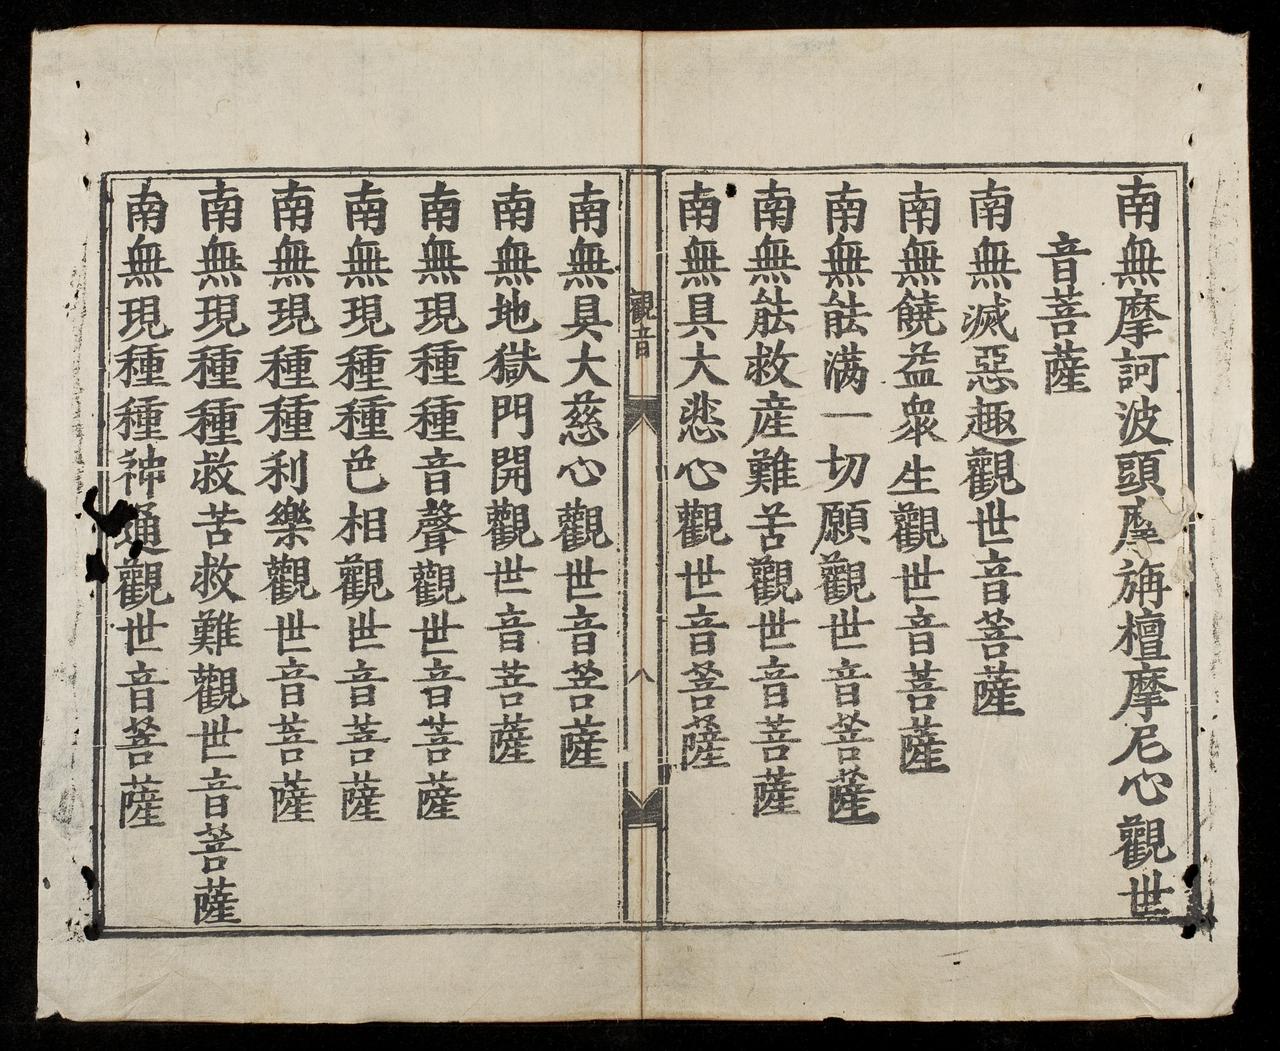 南無摩訶波頭摩旃檀摩尼心觀世
音菩薩
南無滅惡趣觀世音菩薩
南無饒益衆生觀世音菩薩
南無能滿一切願觀世音菩薩
南無能救産難苦觀世音菩薩
南無具大悲心觀世音菩薩
觀音
八
南無具大慈心觀世音菩薩
南無地獄門開觀世音菩薩
南無現種種音聲觀世音菩薩
南無現種種色相觀世音菩薩
南無現種種利樂觀世音菩薩
南無現種種救苦救難觀世音菩薩
南無現種種神通觀世音菩薩